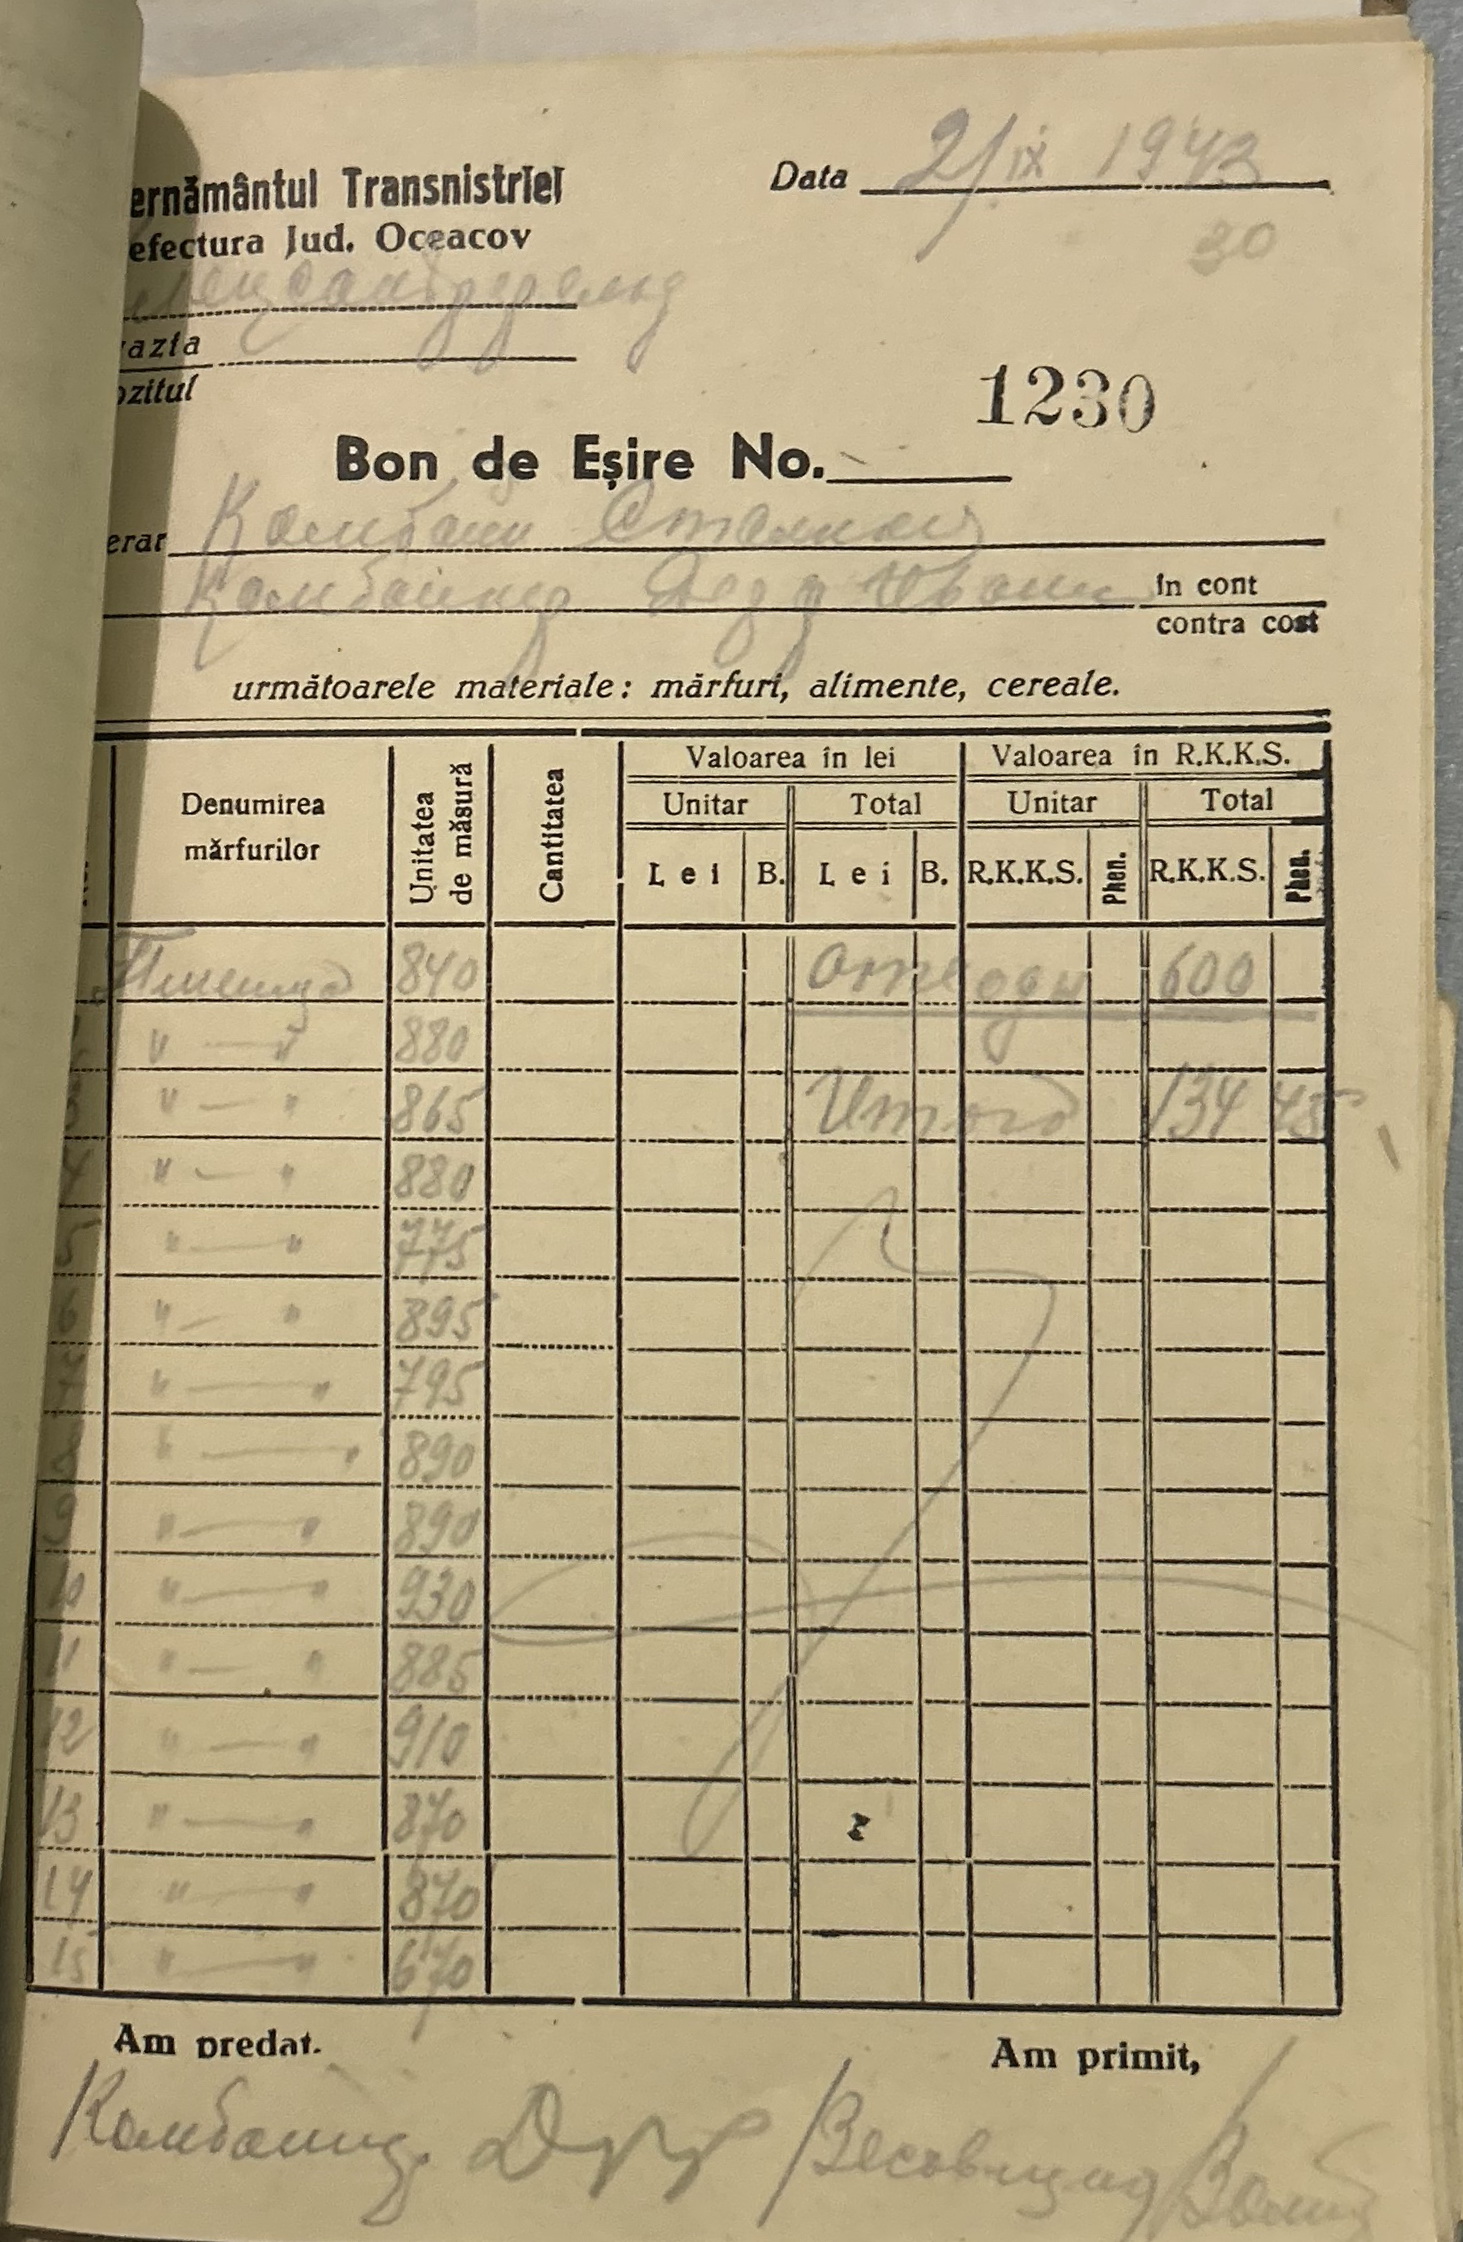 ernământul Transnistriei
Data 2/IX 1943
efectura Jud. Oceacov
30
azia
ozitul
1230
Bon de Eșire No.
erar Комбайн
in cont
contra cost
următoarele materiale: mărfuri, alimente, cereale.
Denumirea mărfurilor Unitatea de măsură Cantitatea Valoarea în lei Valoarea în R.K.K.S.
Unitar Total Unitar Total
Lei B. Lei B. R.K.K.S. Phen. R.K.K.S. Phen.
Пшеница 840 отходы 600
" — " 880
3 " — " 865 Итого 134 75
4 " — " 880
5 " — " 775
6 " — " 895
7 " — " 795
8 " — " 890
9 " — " 890
10 " — " 930
11 " — " 885
12 " — " 910
13 " — " 870
14 " — " 870
15 " — " 670
Am predat. Am primit,